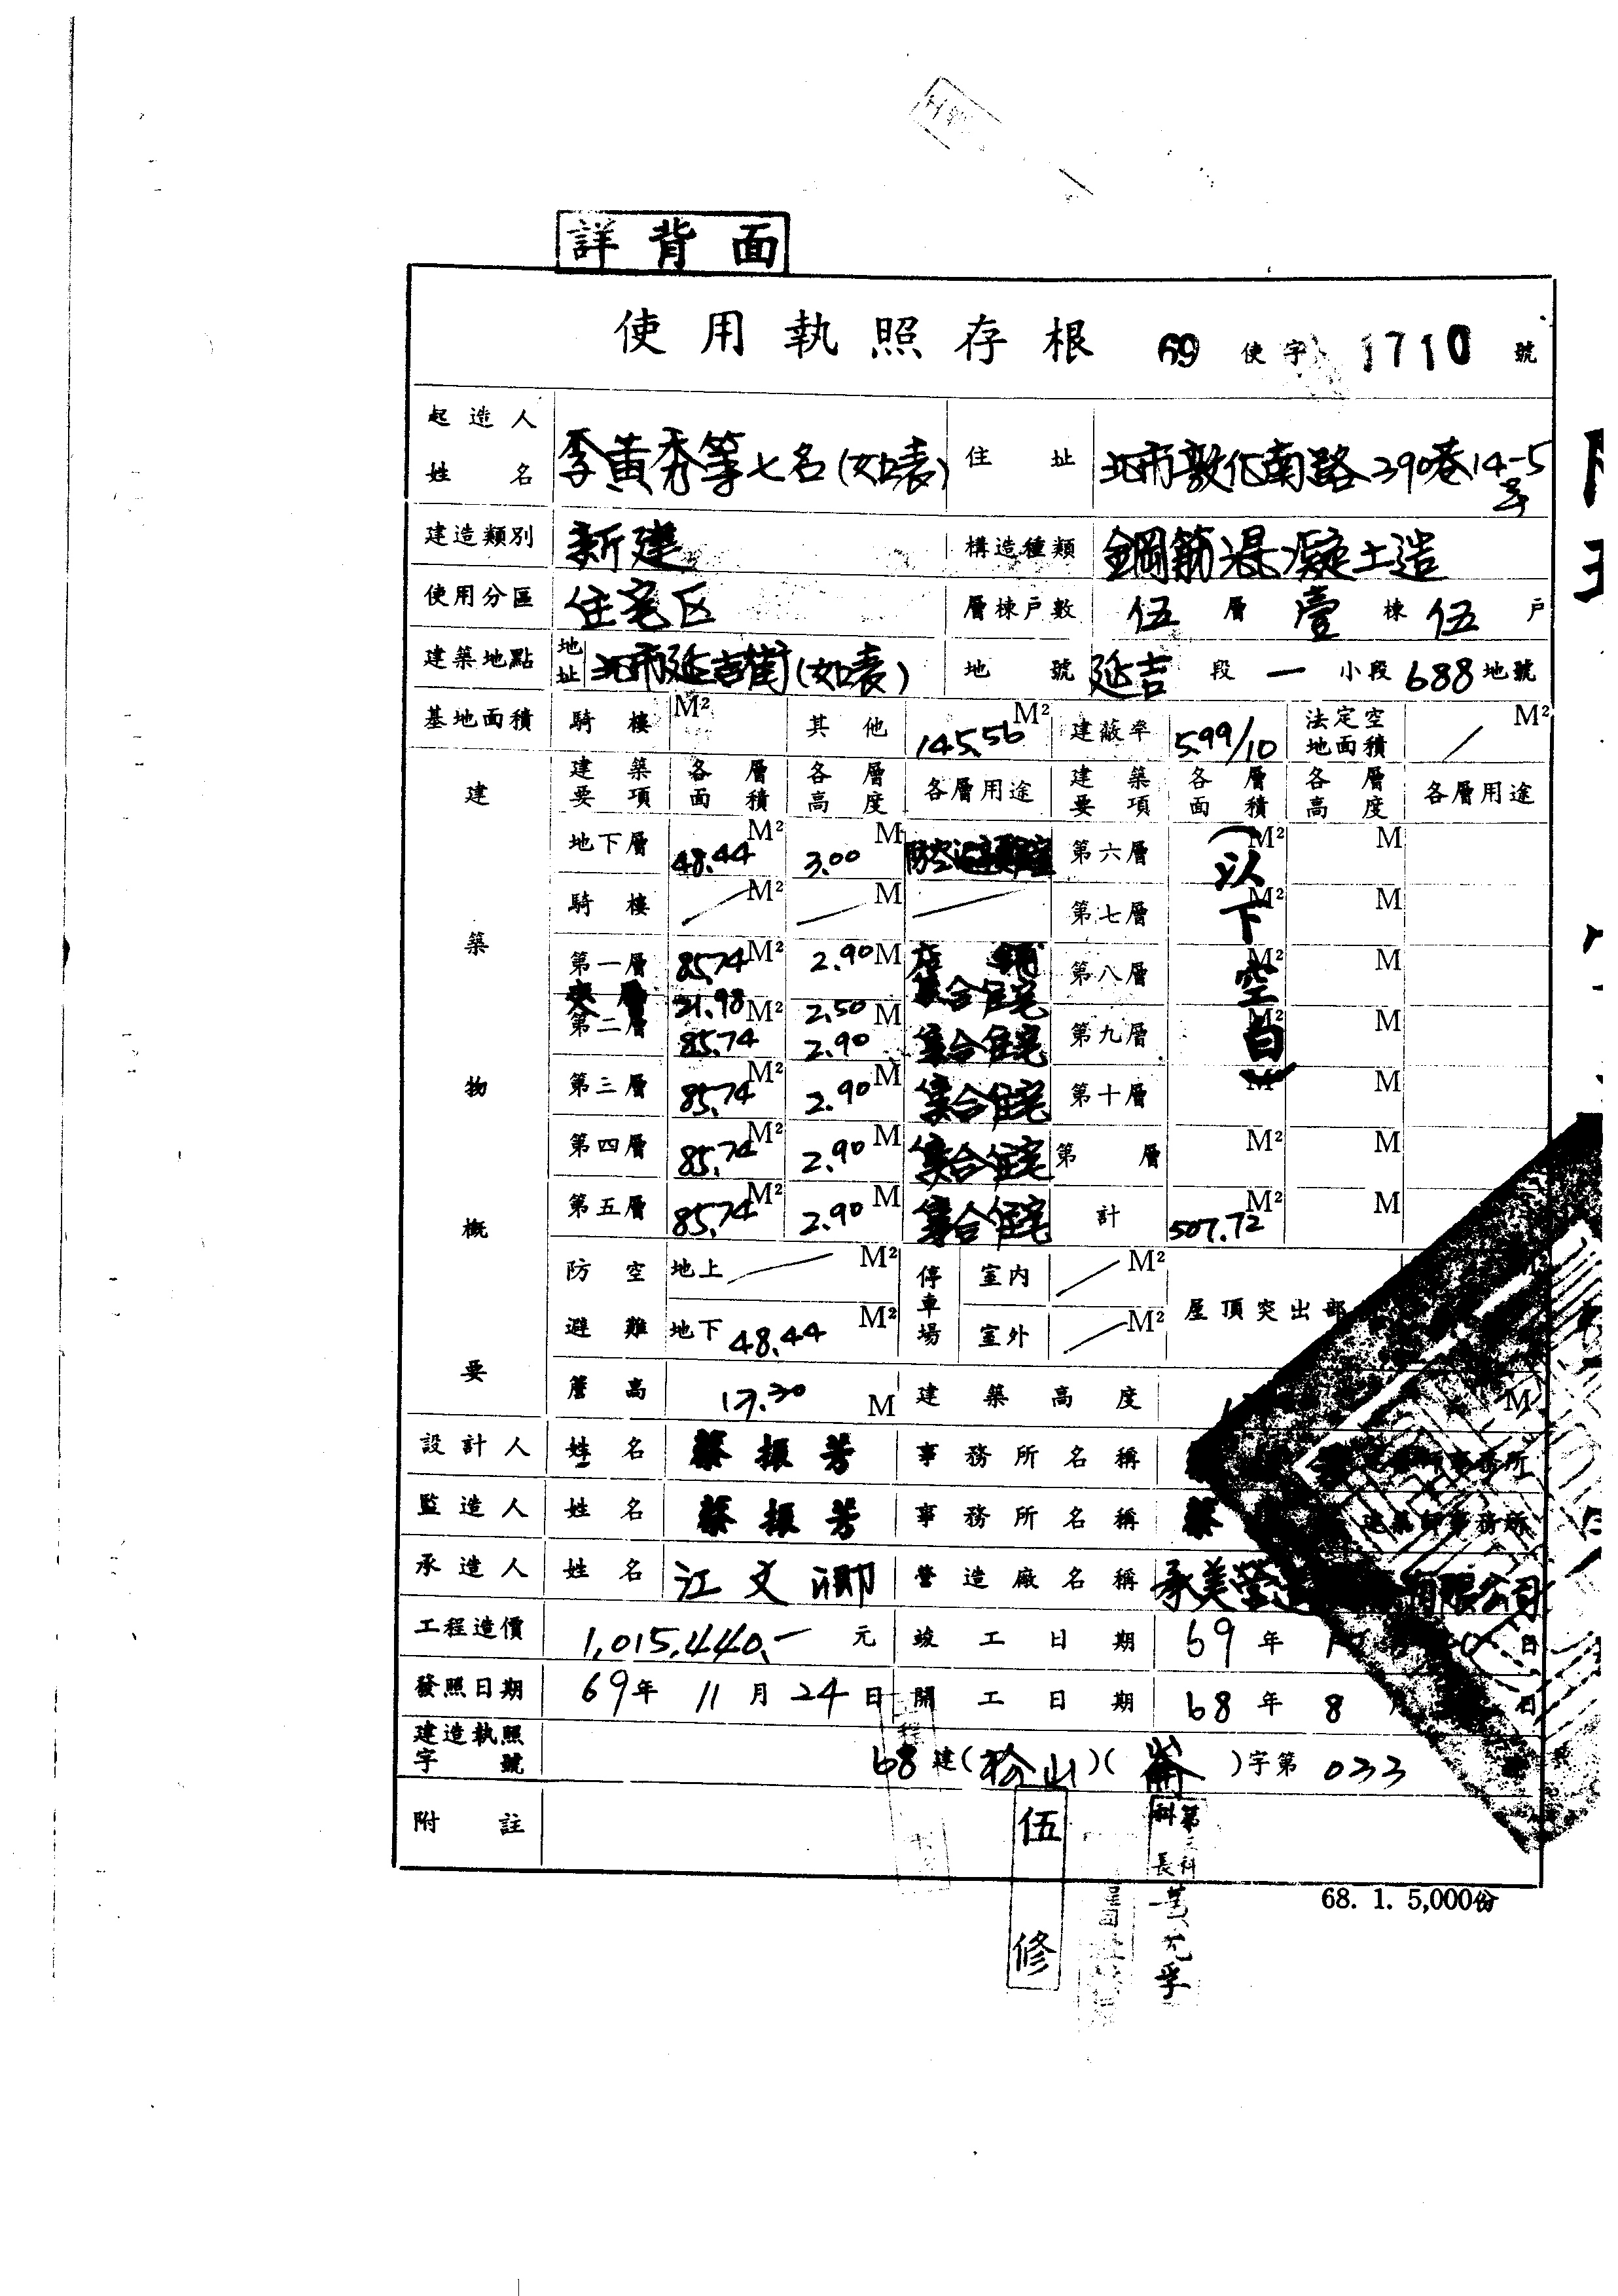 詳背面
使用執照存根 69 使字 1710 號
起造人姓名 李黃秀等七名(如表) 住址 北市敦化南路290巷14-5号
建造類別 新建 構造種類 鋼筋混凝土造
使用分區 住宅区 層棟戶數 伍層壹棟伍戶
建築地點 地址 北市延吉街(如表) 地號 延吉段一小段688地號
基地面積 騎樓 M² 其他 145.56 M² 建蔽率 5.99/10 法定空地面積 / M²
建築物概要
建築要項 各層面積 各層高度 各層用途 建築要項 各層面積 各層高度 各層用途
地下層 48.44 M² 3.00 M 防空 第六層 M² M
騎樓 / M² / M / 第七層 M² M
第一層 85.74 M² 2.90 M 店鋪 集合住宅 第八層 M² M
夾層 21.98 2.50
第二層 85.74 M² 2.90 M 集合住宅 第九層 M² M
第三層 85.74 M² 2.90 M 集合住宅 第十層 M² M
第四層 85.74 M² 2.90 M 集合住宅 第 層 M² M
第五層 85.74 M² 2.90 M 集合住宅 計 507.72 M² M
(以下空白)
防空避難 地上 / M² 停車場 室內 / M² 屋頂突出部
地下 48.44 M² 室外 / M²
簷高 17.30 M 建築高度 M
設計人 姓名 蔡振芳 事務所名稱 事務所
監造人 姓名 蔡振芳 事務所名稱 蔡 建築師事務所
承造人 姓名 江文卿 營造廠名稱 承美營造 有限公司
工程造價 1,015,440.- 元 竣工日期 69年 日
發照日期 69年11月24日 開工日期 68年8月 日
建造執照字號 68建(松山)(崙)字第033
附註
伍修
第三科科長
68. 1. 5,000份